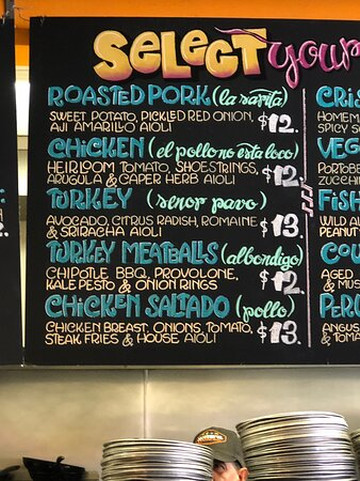 SELECT your
ROASTED PORK (la sarita)
SWEET POTATO, PICKLED RED ONION,
AJI AMARILLO AIOLI $12.
CHICKEN (el pollo no esta loco)
HEIRLOOM TOMATO, SHOESTRINGS,
ARUGULA & CAPER HERB AIOLI $12.
TURKEY (senor pavo)
AVOCADO, CITRUS RADISH, ROMAINE
& SRIRACHA AIOLI $13.
TURKEY MEATBALLS (albondigo)
CHIPOTLE BBQ, PROVOLONE,
KALE PESTO & ONION RINGS $12.
CHICKEN SALTADO (pollo)
CHICKEN BREAST, ONIONS, TOMATO,
STEAK FRIES & HOUSE AIOLI $13.
CRIS
HOMEM
SPICY S
VEG
PORTOBE
ZUCCHI
FISH
WILD AL
PEANUT
COU
AGED
& MUS
PERU
ANGUS
& TOMA